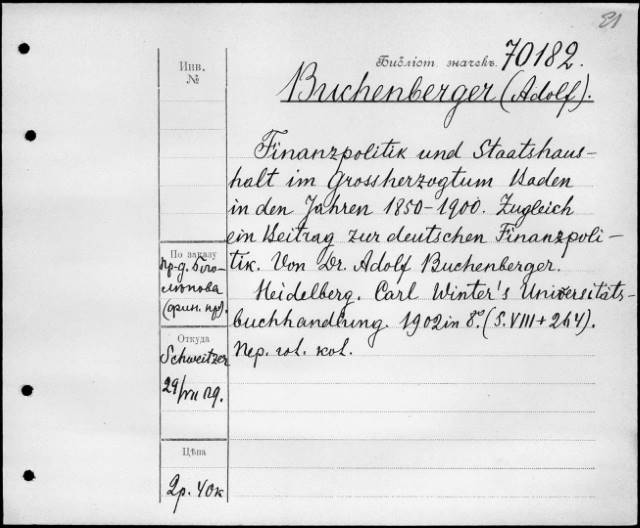 21
Библіот. значекъ. 70182.
Инв.
№
Buchenberger (Adolf).
Finanzpolitik und Staatshaus-
halt im Grossherzogtum Baden
in den Jahren 1850-1900. Zugleich
ein Beitrag zur deutschen Finanzpoli-
tik. Von Dr. Adolf Buchenberger.
Heidelberg. Carl Winter's Universitäts-
buchhandlung. 1902 in 8º. (S. VIII + 264).
Пер. гол. кол.
По заказу
пр-д. Бого-
лѣпова
(фин. пр.).
Откуда
Schweitzer
29/VII 09.
Цѣна
2р. 40к